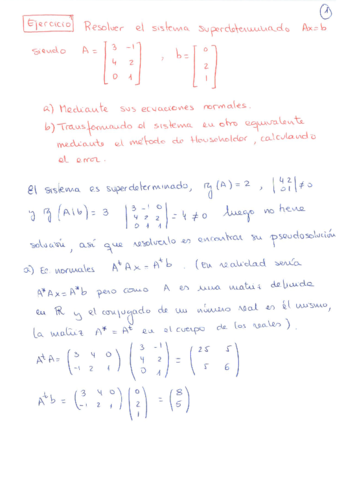 1
Ejercicio Resolver el sistema superdeterminado Ax=b
siendo A = [ 3 -1 ; 4 2 ; 0 1 ] , b = [ 0 ; 2 ; 1 ]
a) Mediante sus ecuaciones normales.
b) Transformando el sistema en otro equivalente
mediante el método de Householder, calculando
el error.
El sistema es superdeterminado, rg(A) = 2 , | 4 2 ; 0 1 | ≠ 0
y rg(A|b) = 3 | 3 -1 0 ; 4 2 2 ; 0 1 1 | = 4 ≠ 0 luego no tiene
solución, así que resolverlo es encontrar su pseudosolución
a) Ec normales AᵗAx = Aᵗb . (En realidad sería
A*Ax = A*b pero como A es una matriz definida
en ℝ y el conjugado de un número real es él mismo,
la matriz A* = Aᵗ en el cuerpo de los reales).
AᵗA = ( 3 4 0 ; -1 2 1 ) ( 3 -1 ; 4 2 ; 0 1 ) = ( 25 5 ; 5 6 )
Aᵗb = ( 3 4 0 ; -1 2 1 ) ( 0 ; 2 ; 1 ) = ( 8 ; 5 )